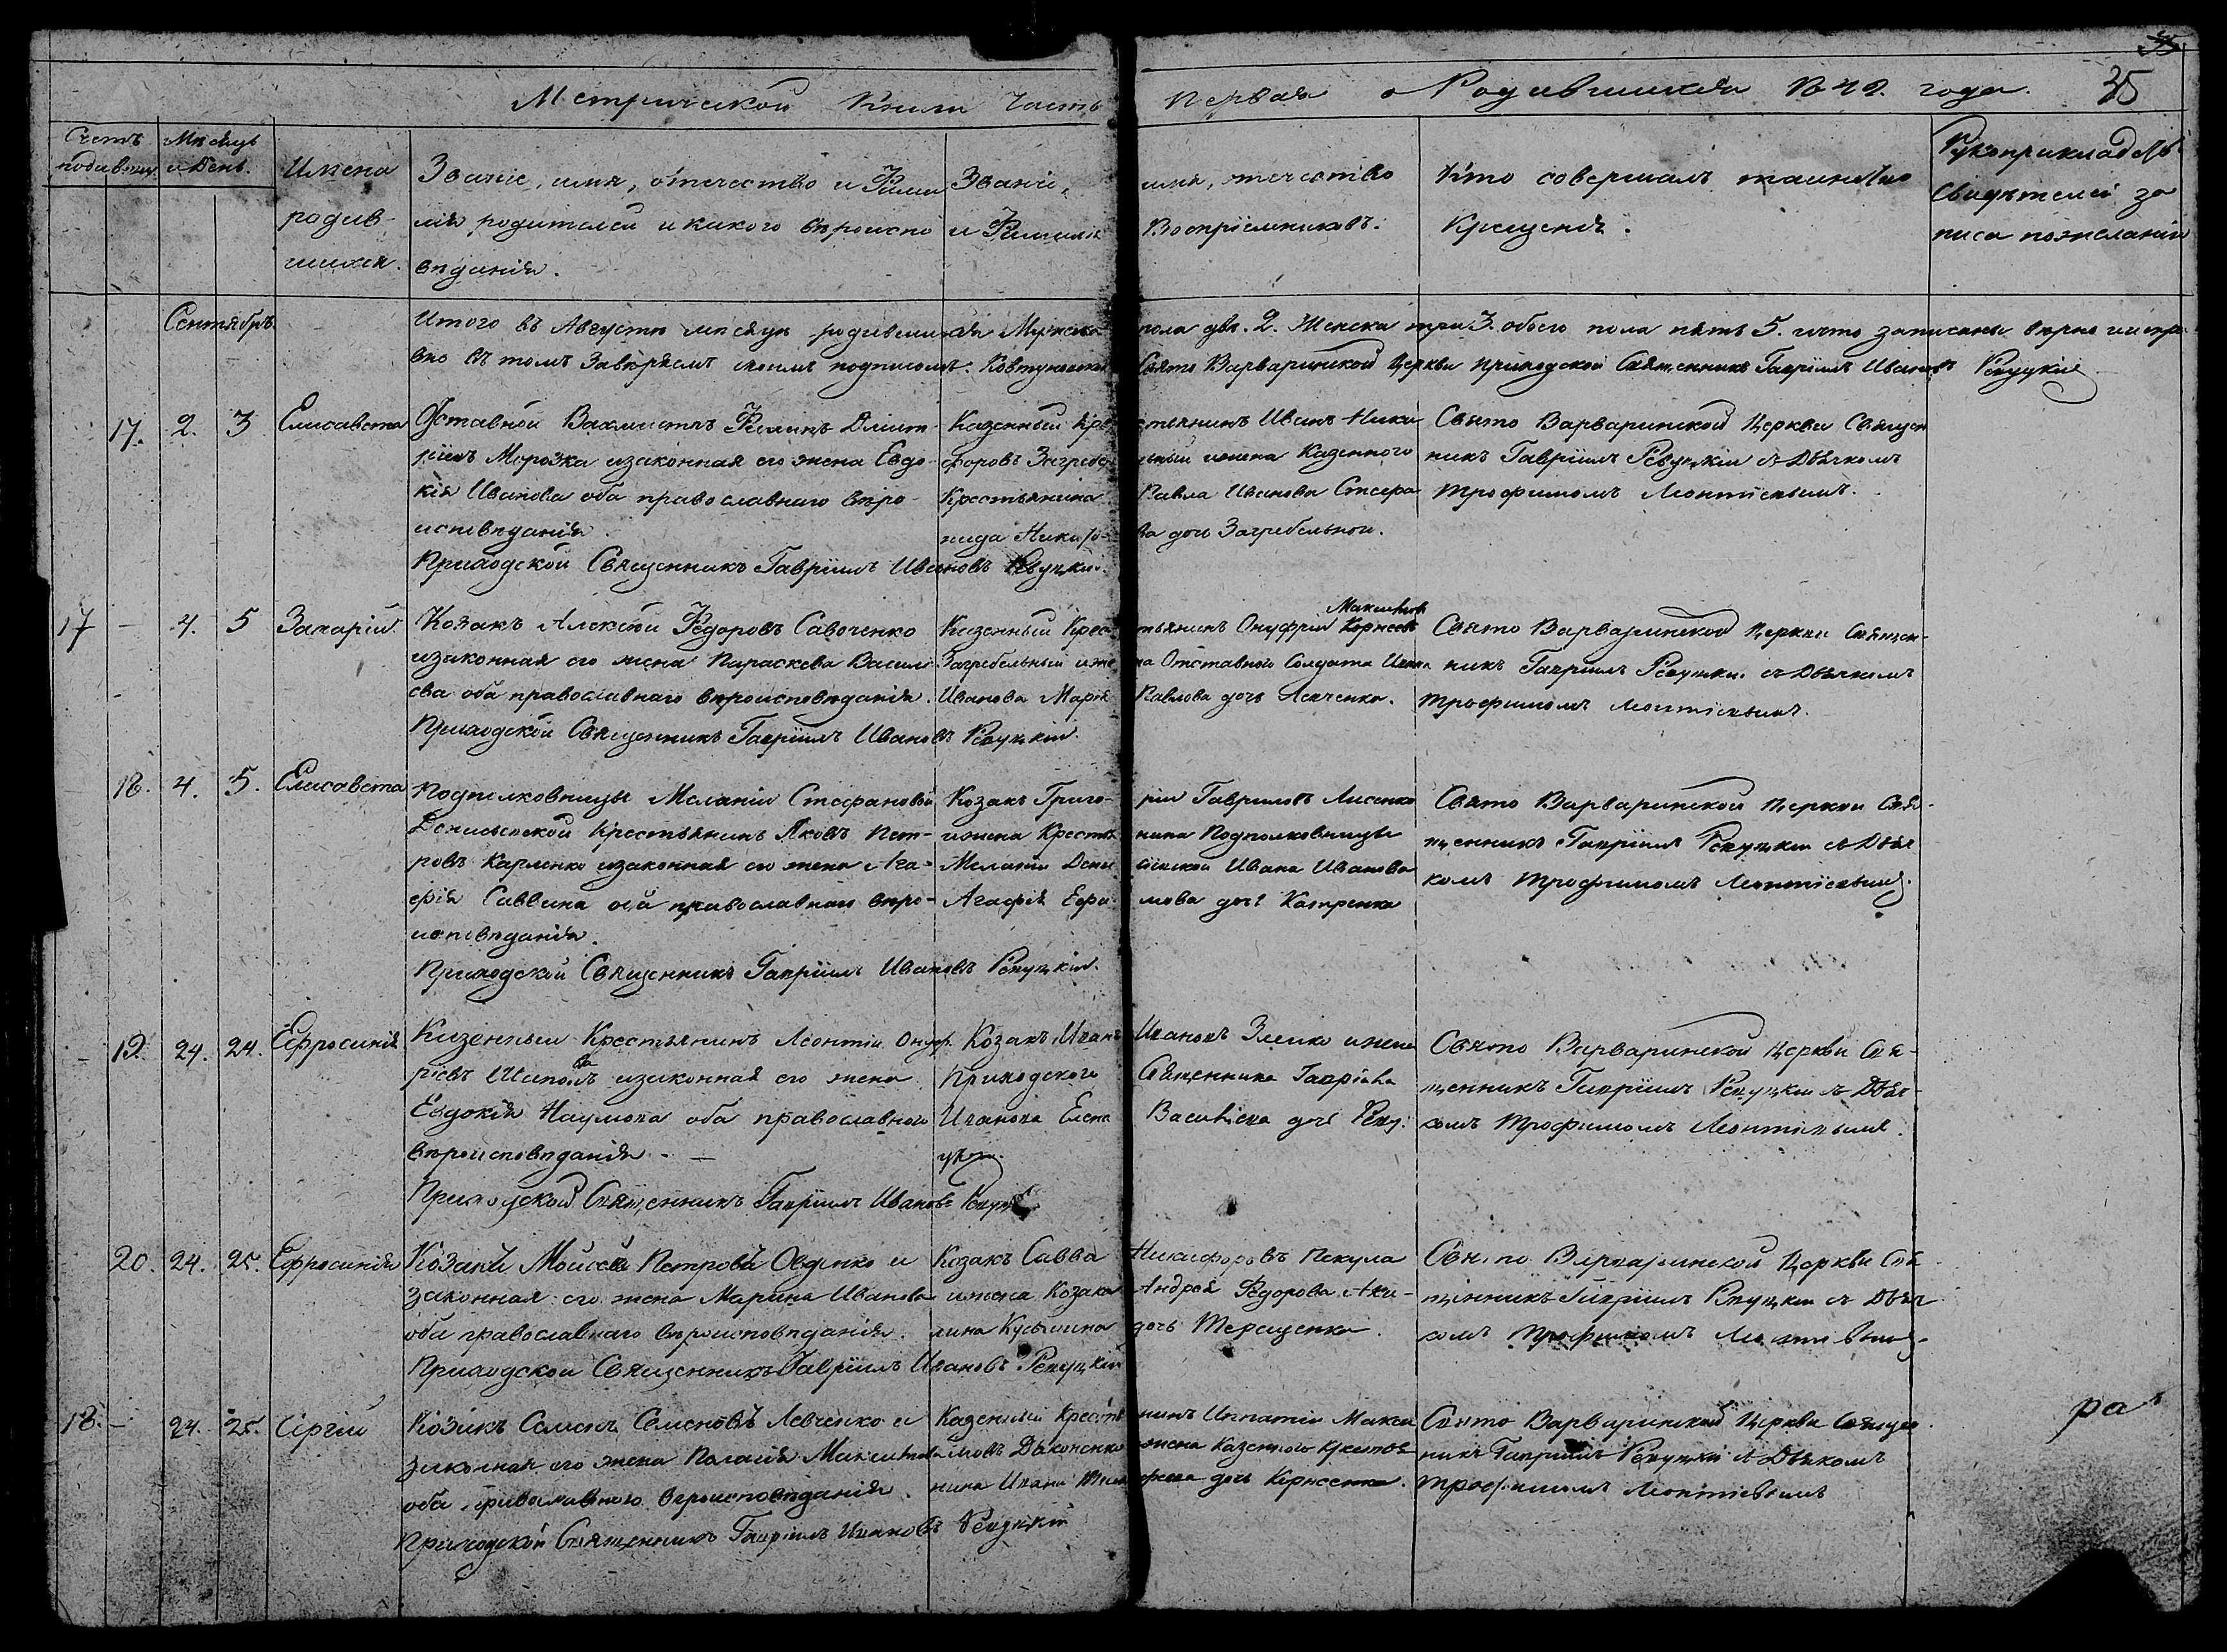 35
Метрической Книги Часть первая о Родившихся 1842. года. 35
Счетъ родивших. Мѣсяцъ и День.
Имена родив-
шихся.
Званіе, имя, отечество и Фами
лія родителей и какого вѣроиспо
вѣданія.
Званіе, имя, отечество
и Фамилія Воспріемниковъ.
Кто совершалъ таинство
Крещенія.
Рукоприкладство
Свидѣтелей за
писи по желанію
Сентябрь
Итого въ Августѣ мѣсяцѣ родившихся Мужска пола два. 2. Женска три 3. обоего пола пять 5. что записаны вѣрно и испра
вно въ томъ Завѣряемъ своимъ подписомъ. Свято Варваринской Церкви приходской Священникъ Гавріилъ Ивановъ Ревуцкій
17. 2. 3 Елисавета
Отставной Вахмистръ Филипъ Дмит-
ріевъ Морозка и законная его жена Евдо-
кія Иванова оба православнаго вѣро-
исповѣданія.
Приходской Священникъ Гавріилъ Ивановъ Ревуцкій.
Казенный Крестьянинъ Иванъ Ники
форовъ Загребельный и жена Казенного
Крестьянина Павла Иванова
нида Никифорова дочь Загребельной.
Свято Варваринской Церкви Священ
никъ Гавріилъ Ревуцкій съ Дьячкомъ
Трофимомъ Леонтіевымъ.
17 - 4. 5 Захарій.
Козакъ Алексѣй Федоровъ Савоченко
и законная его жена Параскева Васили
ева оба православнаго вѣроисповѣданія.
Приходской Священникъ Гавріилъ Ивановъ Ревуцкій.
Максимовъ
Казенный Крестьянинъ Онуфрій Корнеевъ
Загребельный и жена Отставного Солдата Ивана
Иванова Марія Павлова дочь
Свято Варваринской Церкви Священ-
никъ Гавріилъ Ревуцкій съ Дьячкомъ
Трофимомъ Леонтіевымъ.
18. 4. 5. Елисавета
Подполковницы Меланіи Стефановой
Денисевской Крестьянинъ Яковъ Пет-
ровъ Карпенко и законная его жена Ага-
фія Саввина оба православнаго вѣро-
исповѣданія.
Приходской Священникъ Гавріилъ Ивановъ Ревуцкій.
Козакъ Григорій Гавриловъ Лисенко
и жена Крестьянина Подполковницы
Меланіи Денисевской Ивана Иванова
Агафія Ефимова дочь
Свято Варваринской Церкви Свя-
щенникъ Гавріилъ Ревуцкій съ Дьяч
комъ Трофимомъ Леонтіевымъ.
19. 24. 24. Ефросинія
Казенный Крестьянинъ Леонтій Онуф
ріевъ и законная его жена
Евдокія Наумова оба православной
вѣроисповѣданія.
Приходской Священникъ Гавріилъ Ивановъ Ревуцкій
Козакъ Иванъ Ивановъ и жена
Приходского Священника Гавріила
Иванова Елена Василіева дочь Реву
цкая.
Свято Варваринской Церкви Свя-
щенникъ Гавріилъ Ревуцкій съ Дьяч-
комъ Трофимомъ Леонтіевымъ.
20. 24. 25. Ефросинія
Козакъ Моисей Петровъ Овденко и
законная его жена Марина Иванова
оба православнаго вѣроисповѣданія.
Приходской Священникъ Гавріилъ Ивановъ Ревуцкій
Козакъ Савва Никифоровъ Пекула
и жена Козака Андрея Федорова Аки-
лина Кузьмина дочь Терещенка.
Свято Варваринской Церкви Свя
щенникъ Гавріилъ Ревуцкій съ Дьяч
комъ Трофимомъ Леонтіевымъ.
18. - 24. 25. Сергій
Козакъ Семенъ Семеновъ Левченко и
законная его жена Пелагія Максимова
оба православнаго вѣроисповѣданія.
Приходской Священникъ Гавріилъ Ивановъ Ревуцкій
Казенный Крестьянинъ Ипатій Макси
мовъ Дяконенко жена Казенного Крестья
нина Ивана дочь Корнеенка.
Свято Варваринской Церкви Священ
никъ Гавріилъ Ревуцкій съ Дьякомъ
Трофимомъ Леонтіевымъ
ра